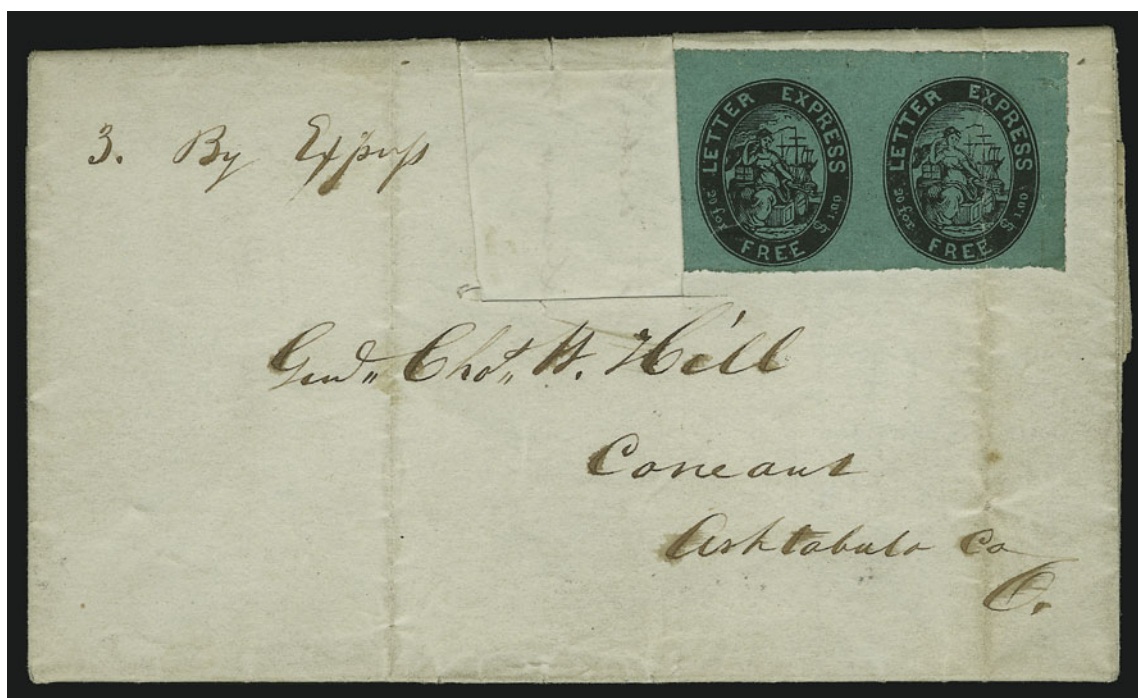 3. By Express
LETTER EXPRESS
20 for $1.00
FREE
LETTER EXPRESS
20 for $1.00
FREE
H. Hill
Coneaut
Ashtabula Co
O.